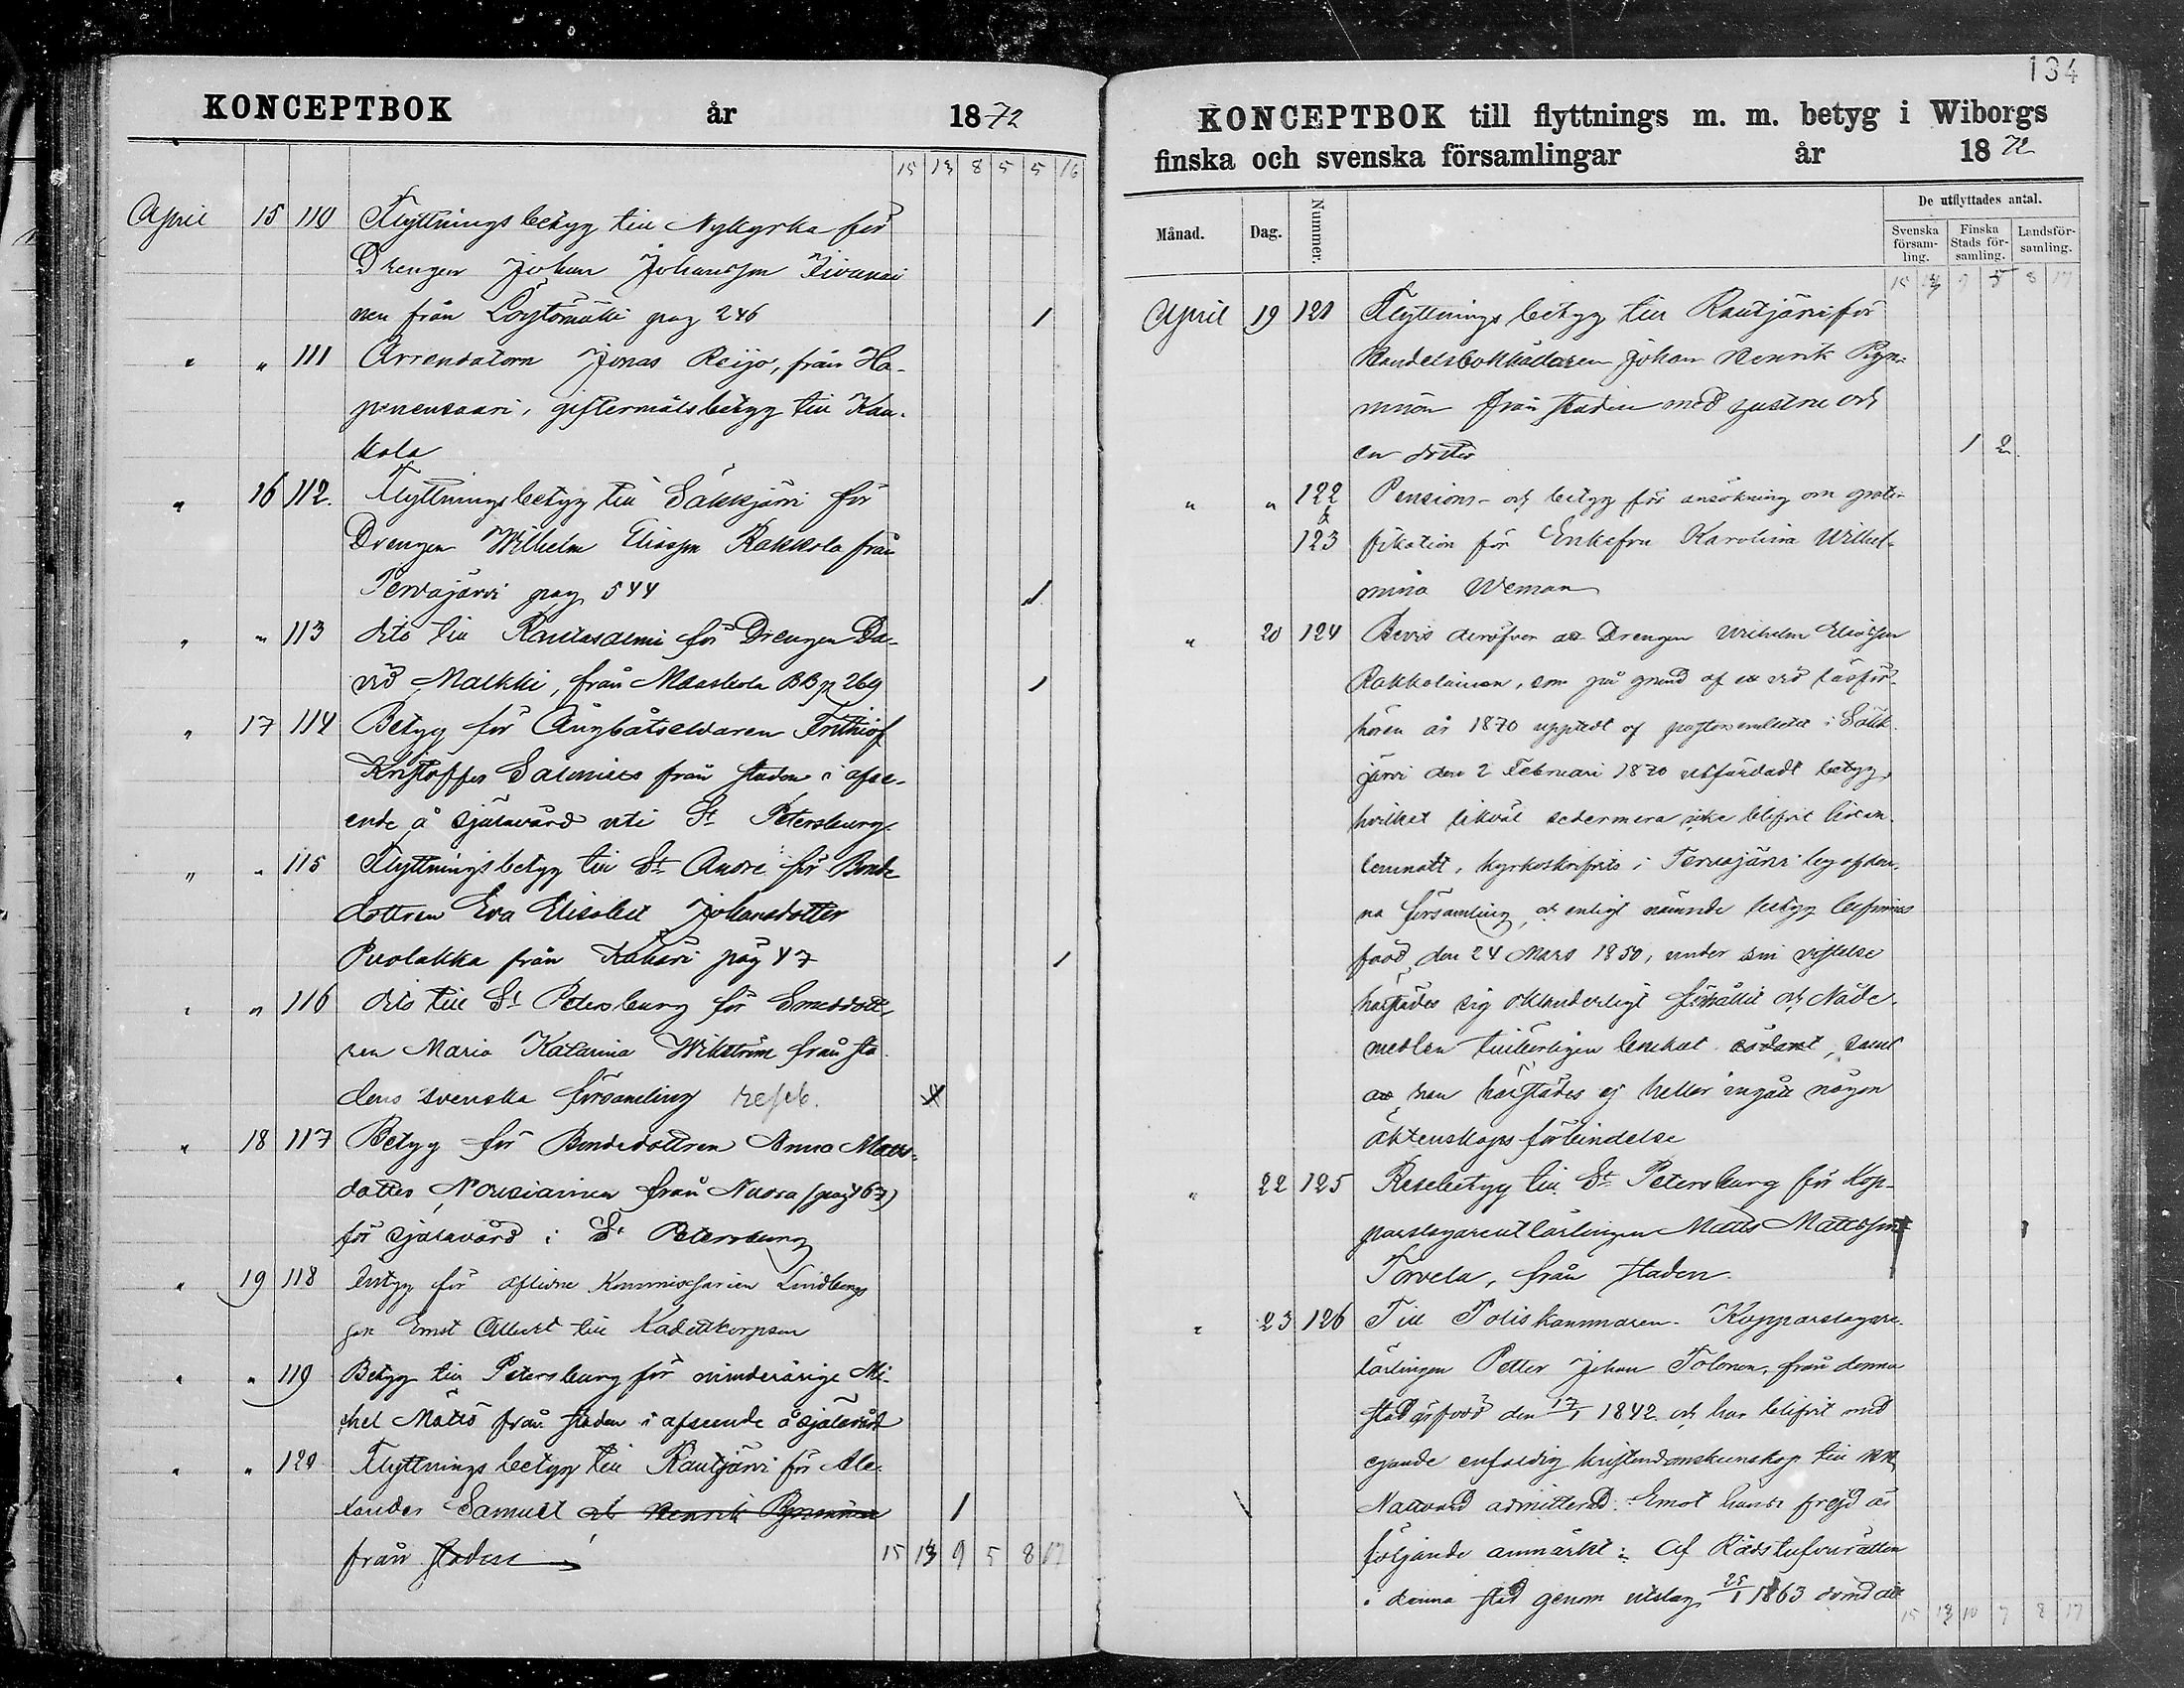 KONCEPTBOK år 1872
15 13 8 5 5 16
April 15 110 Flyttningsbetyg till Nykyrka för
Drengen Johan Johansson Tivanai
nen från Löytömäki pag 246 1
" " 111 Arrendatorn Jonas Reijo, från Ha-
penensaari, giftermålsbetyg till Kau-
kola
" 16 112. Flyttningsbetyg till Säkkjärvi för
Drengen Wilhelm Eliasson Rakkola från
Tervajärvi pag 544 1
" " 113 dito till Rautasalmi för Drengen Da-
vid Malkki, från Maaskola BB p 269 1
" 17 114 Betyg för Ångbåtseldaren Frithiof
Kristoffer Salenius från staden i afse-
ende å själavård uti St Petersburg
" " 115 Flyttningsbetyg till St Andre för Bonde
dottren Eva Elisabet Johansdotter
Puolakka från Kakari pag 47 1
" " 116 dito till St Petersburg för Smeddott-
ren Maria Katarina Wikström från sta
dens svenska församling
" 18 117 Betyg för Bondedottren Anna Matts-
dotter Nousiainen från Nuora (pag 467)
för själavård i St Petersburg
" 19 118 Intyg för aflidne Kommissarien Lindbergs
son Ernst Albert till Kadettkorpsen
" " 119 Betyg till Petersburg för minderårige Mi-
chel Mattö från staden i afseende å själavård
" " 120 Flyttningsbetyg till Rautjärvi för Ale-
xander Samuel 1
från staden 15 13 9 5 8 17
134
KONCEPTBOK till flyttnings m. m. betyg i Wiborgs
finska och svenska församlingar år 1872
Månad. Dag. Nummer. De utflyttades antal.
Svenska försam-ling. Finska Stads för-samling. Landsför-samling.
15 13 9 5 8 17
April 19 121 Flyttningsbetyg till Rautjärvi för
Handelsbokhållaren Johan Henrik Pyn-
ninen från staden med hustru och
en dotter 1 2
" " 122 Pensions- och betyg för ansökning om grati-
& 123 fikation för Enkefru Karolina Wilhel-
mina Weman
" 20 124 Bevis deröfver att Drengen Wilhelm Eliasson
Rakkolainen, som på grund af ett vid läsför-
hören år 1870 uppvist af pastorsembetet i Säkk
järvi den 2 Februari 1870 utfärdadt betyg,
hvilket likväl sedermera icke blifvit hit in
lemnatt, kyrkoskrifvits i Tervajärvi by af den-
na församling, är enligt nämnde betyg
född den 24 Mars 1850, under sin vistelse
härstädes sig oklanderligt förhållit och Nåde-
medlen tillbörligen brukat, samt
att han härstädes ej heller ingått någon
äktenskaps förbindelse
" 22 125 Resebetyg till St Petersburg för Kop-
parslagarelärlingen Matts Mattsson
Torvela, från staden. 1
" 23 126 Till Poliskammaren. Kopparslagare-
lärlingen Petter Johan Tolonen, från denna
stad är född den 17/1 1842 och har blifvit med
egande enfaldig kristendomskunskap till HH
Nattvard admitterad. Emot hans frejd är
följande anmärkt: Af Rådstufvurätten
i denna stad genom utslag 25/1 1863 dömd att
15 13 10 7 8 17